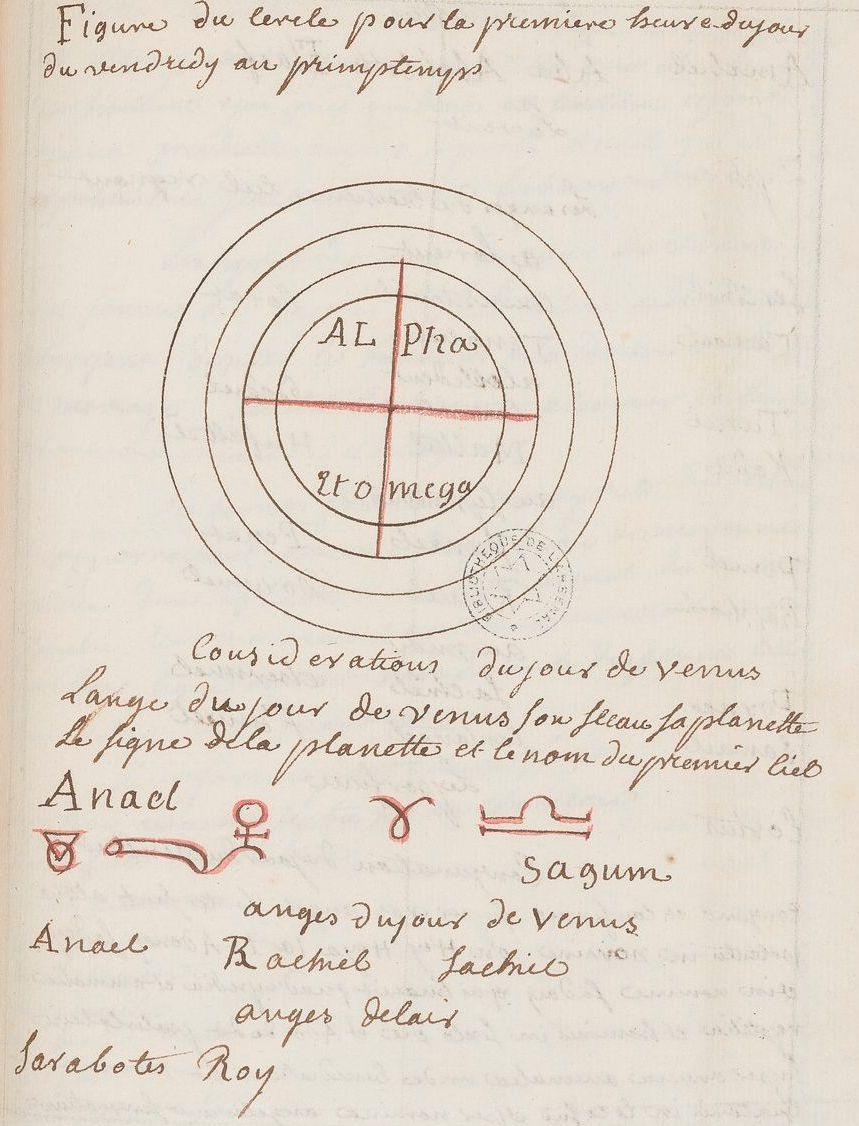 Figure du Cercle pour la premiere heure du jour
du vendredy au primptemps
AL Pha
Et o mega
BIBLIOTHEQUE DE L'ARSENAL
Considerations du jour de venus
Lange du jour de venus son sceau sa planette
Le signe de la planette et le nom du premier Ciel
Anael
Sagum
anges du jour de venus
Anael Rachiel Sachiel
anges delair
Sarabotes Roy